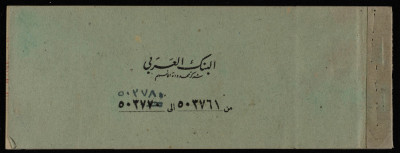 البنك العربي
شركة محدودة الاسهم
٥٠٣٧٨٠
من ٥٠٣٧٦١ الى ٥٠٣٧٧٠